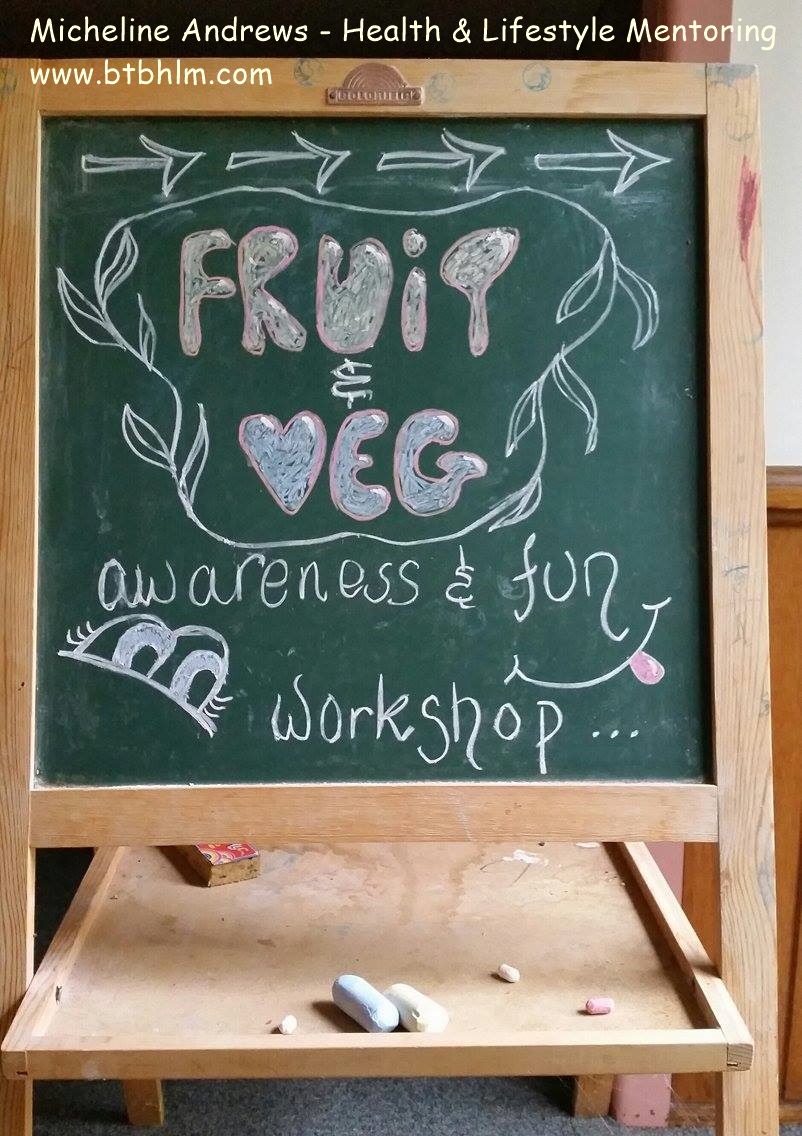 Micheline Andrews - Health & Lifestyle Mentoring
www.btbhlm.com
FRUiT
&
VEG
awareness & fun
workshop...